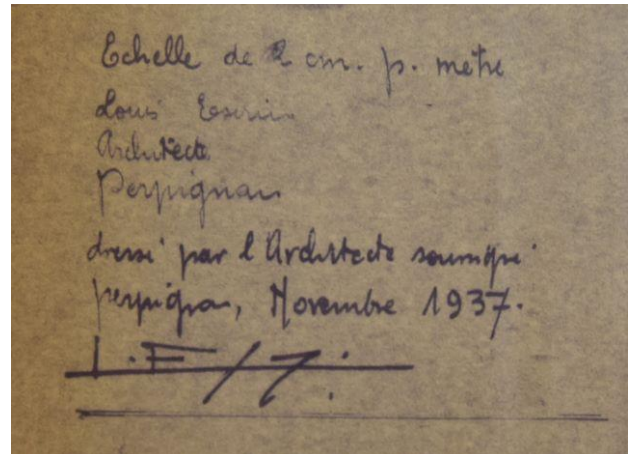 Echelle de 2 cm. p. mètre
Louis
Architecte
Perpignan
dressé par l'Architecte soussigné
perpignan, Novembre 1937.